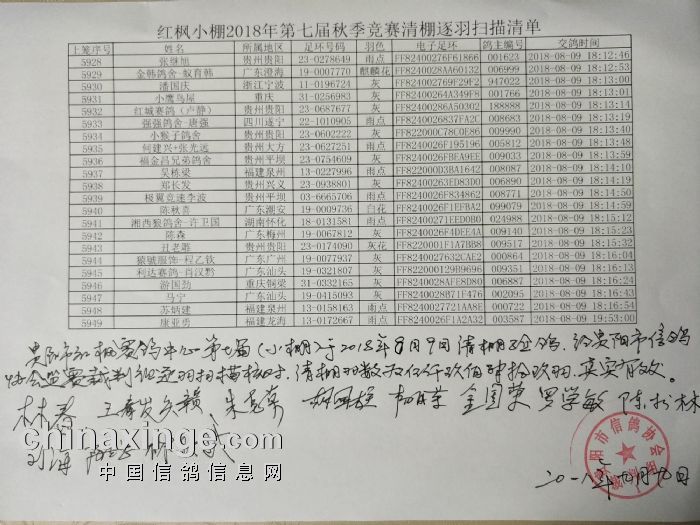 红枫小棚2018年第七届秋季竞赛清棚逐羽扫描清单
上笼序号 姓名 所属地区 足环号码 羽色 电子足环 鸽主编号 交鸽时间
5928 张继旭 贵州贵阳 23-0278649 雨点 FF82400276F61866 001623 2018-08-09 18:12:46
5929 金韩鸽舍-蚁育韩 广东澄海 19-0007770 麒麟花 FF8240028AA60132 006999 2018-08-09 18:12:53
5930 潘国庆 浙江宁波 11-0196724 灰 FF824002769F29F2 947022 2018-08-09 18:13:00
5931 小鹰鸟屋 重庆 31-0256983 灰 FF8240026A4349F8 001766 2018-08-09 18:13:01
5932 红城赛鸽（卢静） 贵州贵阳 23-0687677 灰 FF82400286A50302 188888 2018-08-09 18:13:14
5933 强强鸽舍-唐强 四川遂宁 22-1010905 雨点 FF82400026837FA2C 008683 2018-08-09 18:13:19
5934 小猴子鸽舍 贵州贵阳 23-0602222 灰 FF822000C78C0E86 009990 2018-08-09 18:13:40
5935 何建兴+张光远 贵州大方 23-0627251 雨点 FF8240026F195196 005812 2018-08-09 18:13:48
5936 福金吕兄弟鸽舍 贵州平坝 23-0754609 灰 FF8240026FBEA9EE 009033 2018-08-09 18:13:59
5937 吴栋梁 福建泉州 13-0227996 雨点 FF822000D3BA1642 008087 2018-08-09 18:14:10
5938 郑长发 贵州兴义 23-0938801 灰 FF82400263ED83D0 006890 2018-08-09 18:14:19
5939 极翼竞速李波 贵州贵阳 03-6665706 雨点 FF8240026F834862 008771 2018-08-09 18:14:50
5940 陈秋喜 广东潮安 19-0009736 白花 FF8240026F1EFBA2 099079 2018-08-09 18:14:59
5941 湘西狼鸽舍-许卫国 湖南怀化 18-0131581 雨点 FF82400271EED0B0 024988 2018-08-09 18:15:12
5942 陈森 广东梅州 19-0067812 灰 FF8240026F4DEE4A 009140 2018-08-09 18:15:23
5943 丑老雕 贵州贵阳 23-0174090 灰花 FF8220001F1A7BB8 009517 2018-08-09 18:15:32
5944 猿虢服饰-程乙钦 广东广州 19-0077937 灰 FF82400027632CAE2 000864 2018-08-09 18:16:04
5945 利达赛鸽-肖汉黔 广东汕头 19-0321807 灰 FF8220000129B9696 009351 2018-08-09 18:16:13
5946 游国劲 重庆铜梁 31-0332165 灰 FF8240028AFE8D80 006887 2018-08-09 18:16:24
5947 马宁 广东汕头 19-0415093 灰 FF8240028B71F476 002095 2018-08-09 18:16:43
5948 苏炳建 福建泉州 13-0158163 雨点 FF82400027721AA8E 000722 2018-08-09 18:16:54
5949 康亚勇 福建龙海 13-0172667 雨点 FF8240026F1A2A32 003587 2018-08-09 19:53:00
贵阳市红枫赛鸽中心第七届（小棚）于2018年8月9日清棚验鸽，经贵阳市信鸽
协会监赛裁判组逐羽扫描核对，清棚羽数为伍仟玖佰肆拾玖羽，真实有效。
林春 朱昆荣 金国荣 罗学敏 陈松林
二〇一八年八月九日
贵阳市信鸽协会
chinaxinge.com
中国信鸽信息网